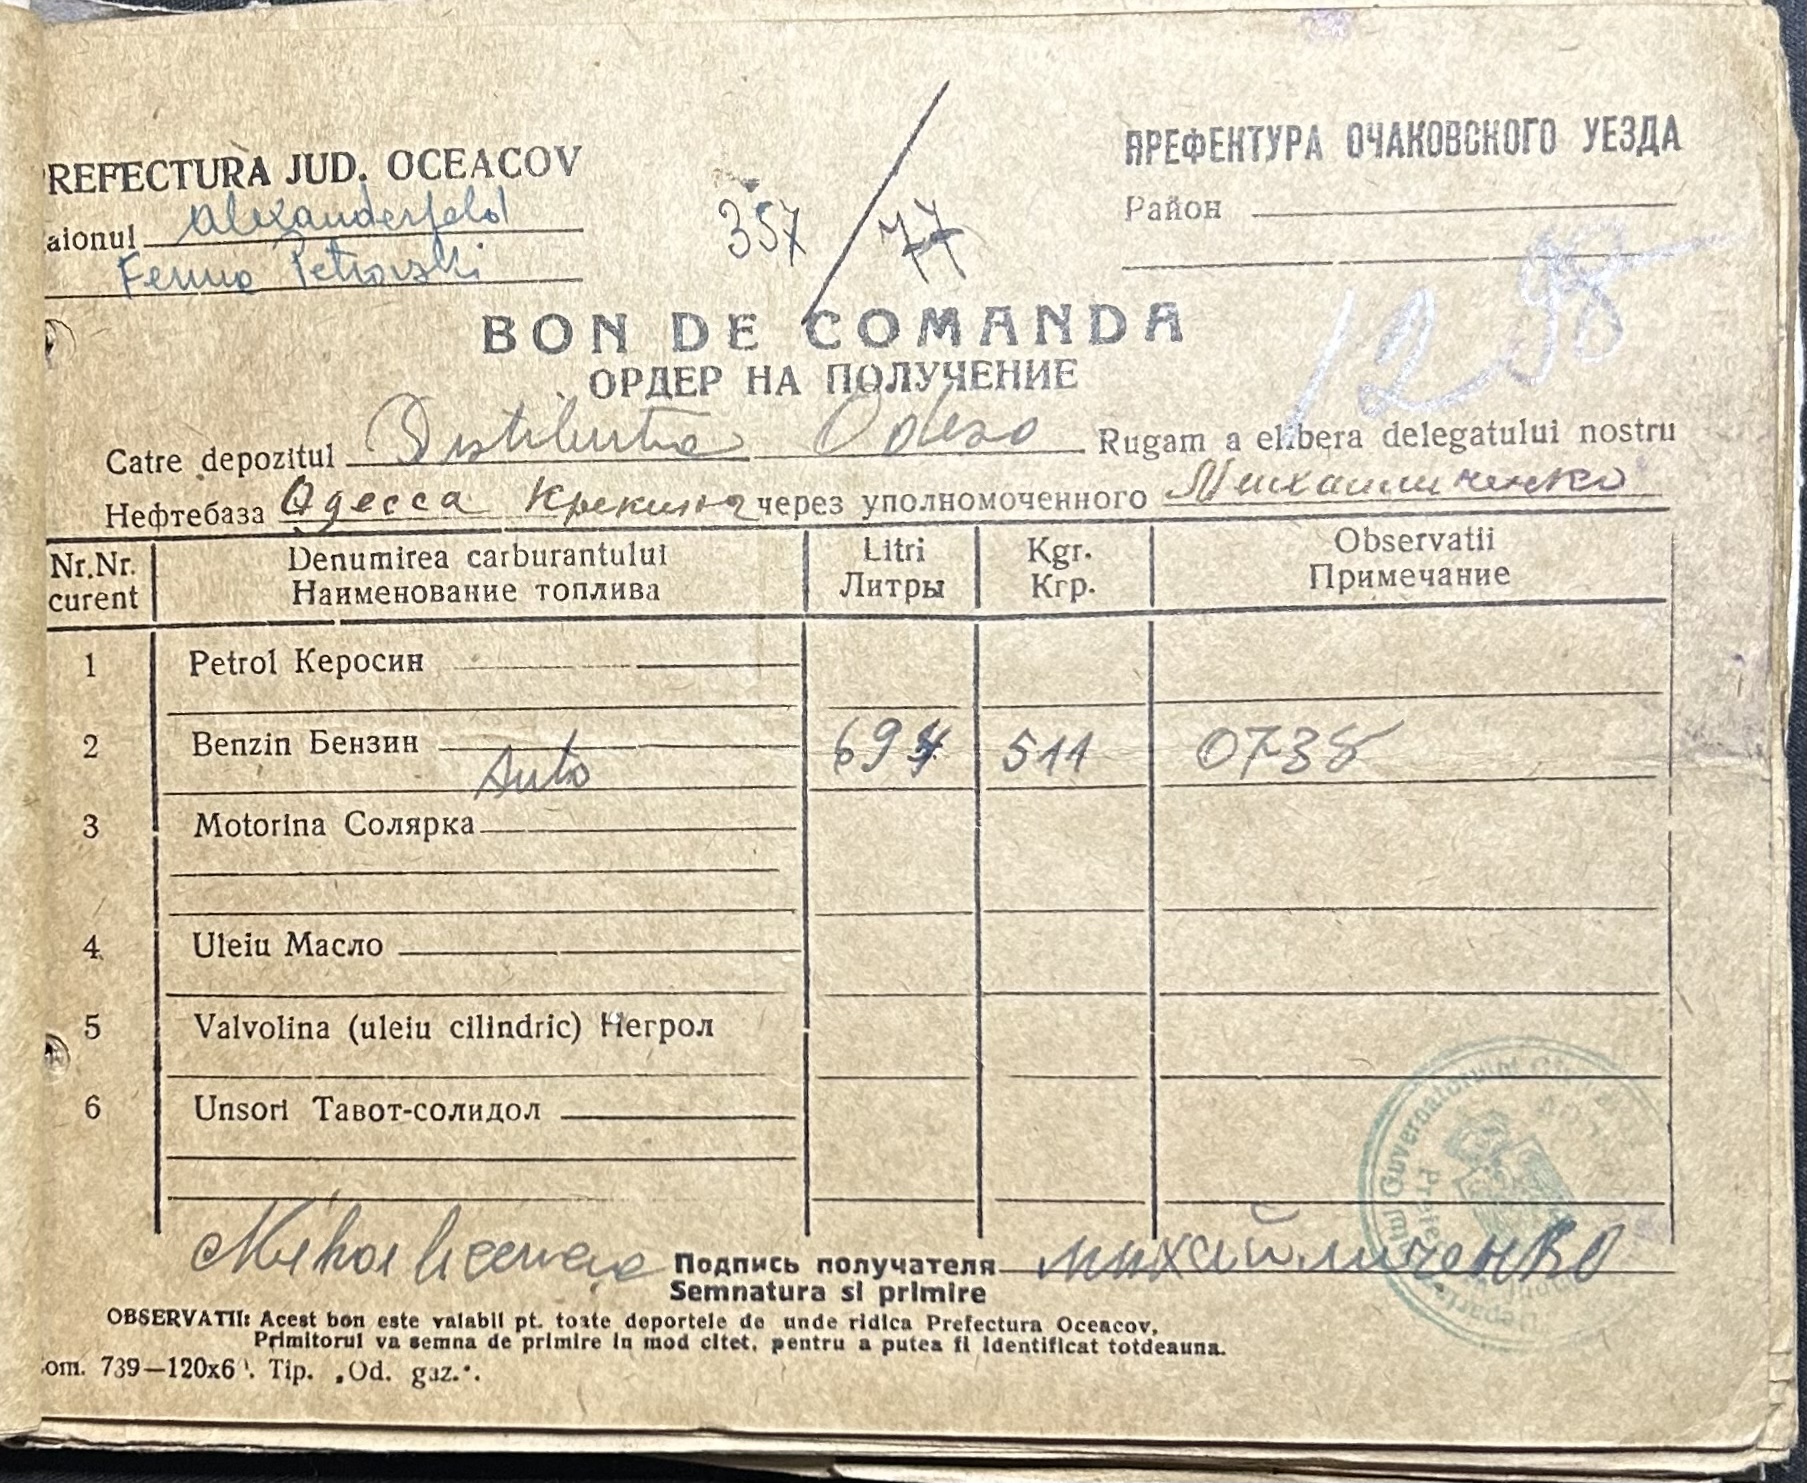 REFECTURA JUD. OCEACOV
ПРЕФЕКТУРА ОЧАКОВСКОГО УЕЗДА
aionul Alexanderfeld
Ferma Petrovski
357/77
Район
12 98
BON DE COMANDA
ОРДЕР НА ПОЛУЧЕНИЕ
Catre depozitul Distributia Odesa Rugam a elibera delegatului nostru
Нефтебаза Одесса Крекинг через уполномоченного Михайличенко
Nr.Nr. curent Denumirea carburantului Litri Kgr. Observatii
Наименование топлива Литры Кгр. Примечание
1 Petrol Керосин
2 Benzin Бензин Auto 694 511 0738
3 Motorina Солярка
4 Uleiu Масло
5 Valvolina (uleiu cilindric) Негрол
6 Unsori Тавот-солидол
Подпись получателя михайличенко
Semnatura si primire
OBSERVATII: Acest bon este valabil pt. toate deportele de unde ridica Prefectura Oceacov,
Primitorul va semna de primire in mod citet, pentru a putea fi identificat totdeauna.
om. 739—120x6 . Tip. „Od. gaz.".
Guvernatorului